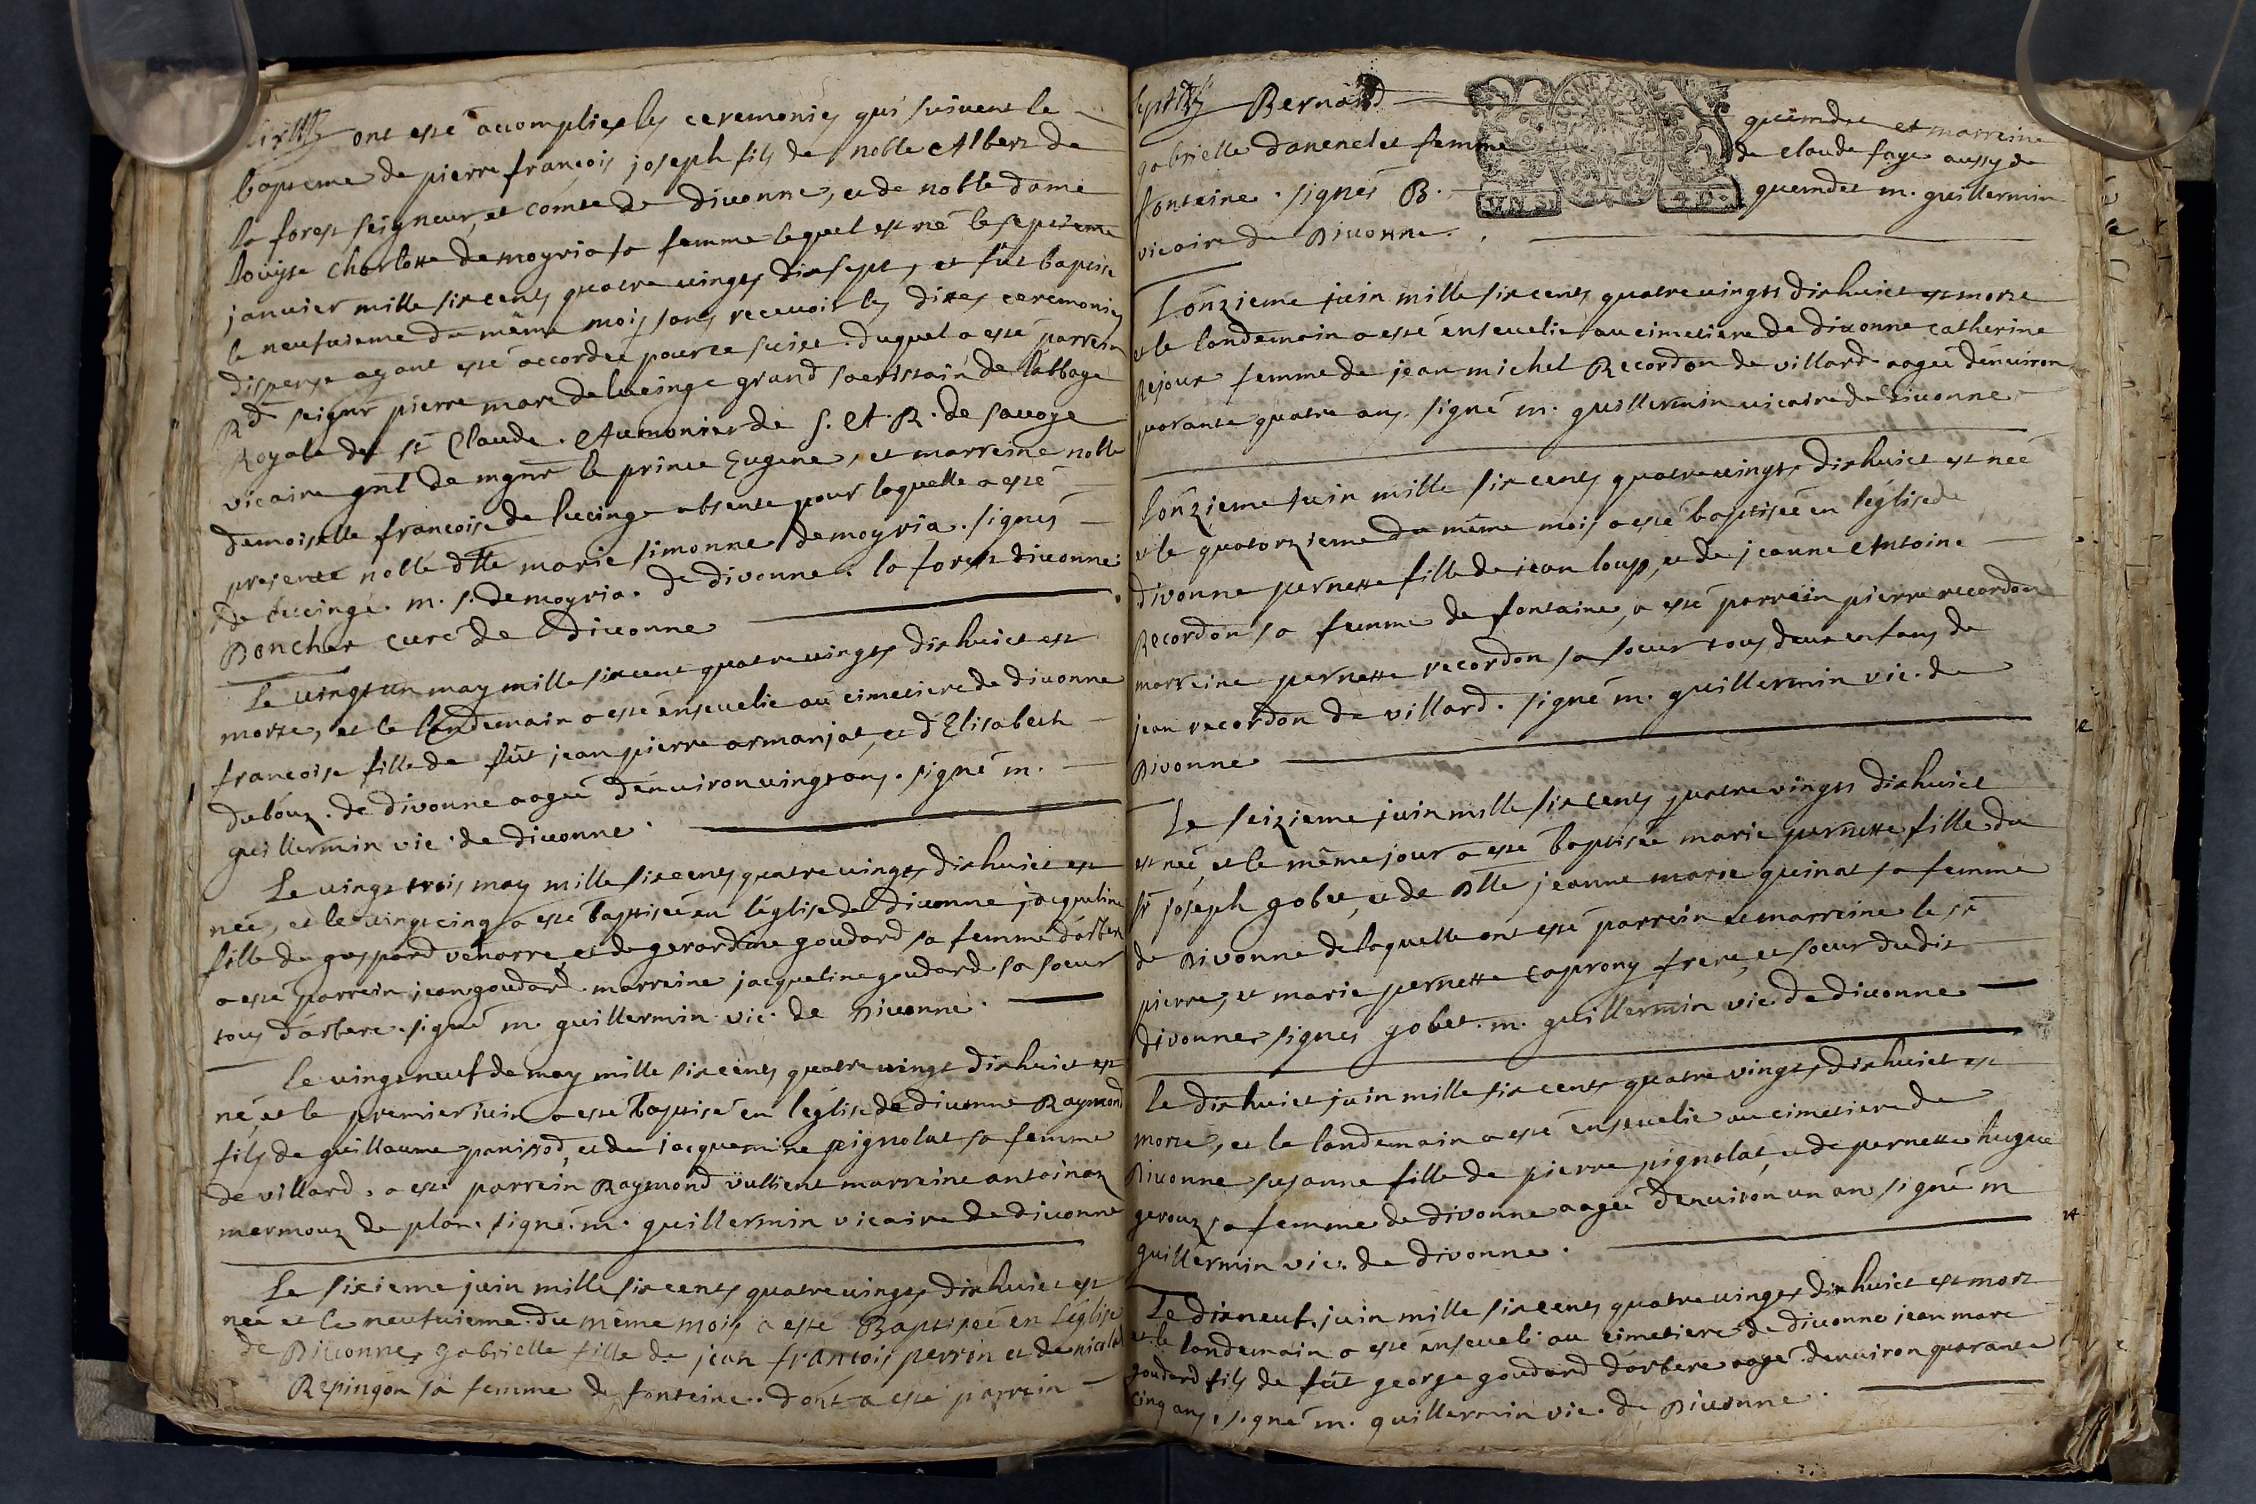 ont esté accomplies les ceremonies qui suivent le
bapteme de pierre françois joseph fils de noble Albert de
la forest seigneur, et comte de divonne, et de noble dame
Louyse Charlotte de moyria sa femme lequel est né le septieme
janvier mille six cents quatre vingts dix sept, et fut baptisé
le neufvieme du même mois sans recevoir les dittes ceremonies
dispense ayant esté accordée pour ce sujet. duquel a esté parrein
Rd seignr pierre marc de lucinge grand sacristain de l'abbaye
Royale de st Claude. Aumonier de S. A. R. de savoye
vicaire gnl de mgnr le prince Eugene, et marreine noble
demoiselle francoise de lucinge absente pour laquelle a esté
presente noble dlle marie simonne de moyria. signés
de lucinge. m. s. de moyria. de divonne. la forest divonne.
Boncher curé de divonne
Le vingt un may mille six cent quatre vingts dixhuict est
morte, et le lendemain a esté ensevelie au cimetiere de divonne
francoise fille de fût jean pierre armanjat, et d'Elisabeth
dubouz. de divonne aagée d'environ vingt ans. signé m.
guillermin vic. de divonne.
Le vingt trois may mille six cents quatre vingts dixhuict est
née, et le vingt cinq a esté baptisée en l'église de divonne jacqueline
fille de gaspard venarre et de gerardine goudard sa femme d'arbere
a esté parrein jean goudard. marreine jacqueline goudard sa soeur
tous d'arbere. signé m. guillermin. vic. de Divonne.
Le vingt neuf de may mille six cents quatre vingt dixhuict est
né, et le premier juin a esté baptisé en l'église de divonne Raymond
fils de guillaume panissod, et de jacquemine pignolat sa femme
de villard. a esté parrein Raymond vulliens marreine antoinaz
mermouz de plan. signé. m. guillermin vicaire de divonne
Le sixieme juin mille six cents quatre vingts dixhuict est
née et le neufvieme du même mois a esté Baptisée en L'église
de Divonne, gabrielle fille de jean francois perrin et de nicolle
Repingon sa femme de fonteine. dont a esté parrein
Bernard quemdet et marreine
gabrielle danenclet femme de claude fage aussy de
fonteine. signés B. quemdet m. guillermin
VN S. 4 D.
vicaire de Divonne.
L'onzieme juin mille six cents quatre vingts dixhuict est morte
et le landemain a esté ensevelie au cimetiere de divonne catherine
Rejoux femme de jean michel Recordon de villard aagée d'environ
quarante quatre ans. signé m. guillermin vicaire de divonne
L'onzieme juin mille six cents quatre vingts dixhuict est née
et le quatorzieme du même mois a esté baptisée en l'église de
divonne pernette fille de jean loup, et de jeanne Antoine
Recordon sa femme de fontaine, a esté parrein pierre recordon
marreine pernette recordon sa soeur tous deux enfans de
jean recordon de villard. signé m. guillermin vic. de
Divonne
Le seizieme juin mille six cents quatre vingts dixhuict
est née, et le même jour a esté baptisée marie pernette fille du
sr joseph gobet, et de Dlle jeanne marie quinat sa femme
de Divonne de laquelle ont esté parrein et marreine le sr
pierre, et marie pernette caprony frere, et soeur dudit
divonne signés gobet. m. guillermin vic. de divonne
Le dixhuict juin mille six cents quatre vingts dixhuict est
morte, et le landemain a esté ensevelie au cimetiere de
Divonne susanne fille de pierre pignolat, et de pernette hugue
gerouz sa femme de divonne aagée d'environ un an signé m
guillermin vic. de divonne.
Le dixneuf juin mille six cents quatre vingts dixhuict est mort
et le landemain a esté enseveli au cimetiere de divonne jean marc
goudard fils de fût george goudard d'arbere aagé d'environ quarante
cinq ans. signé m. guillermin vic. de Divonne.